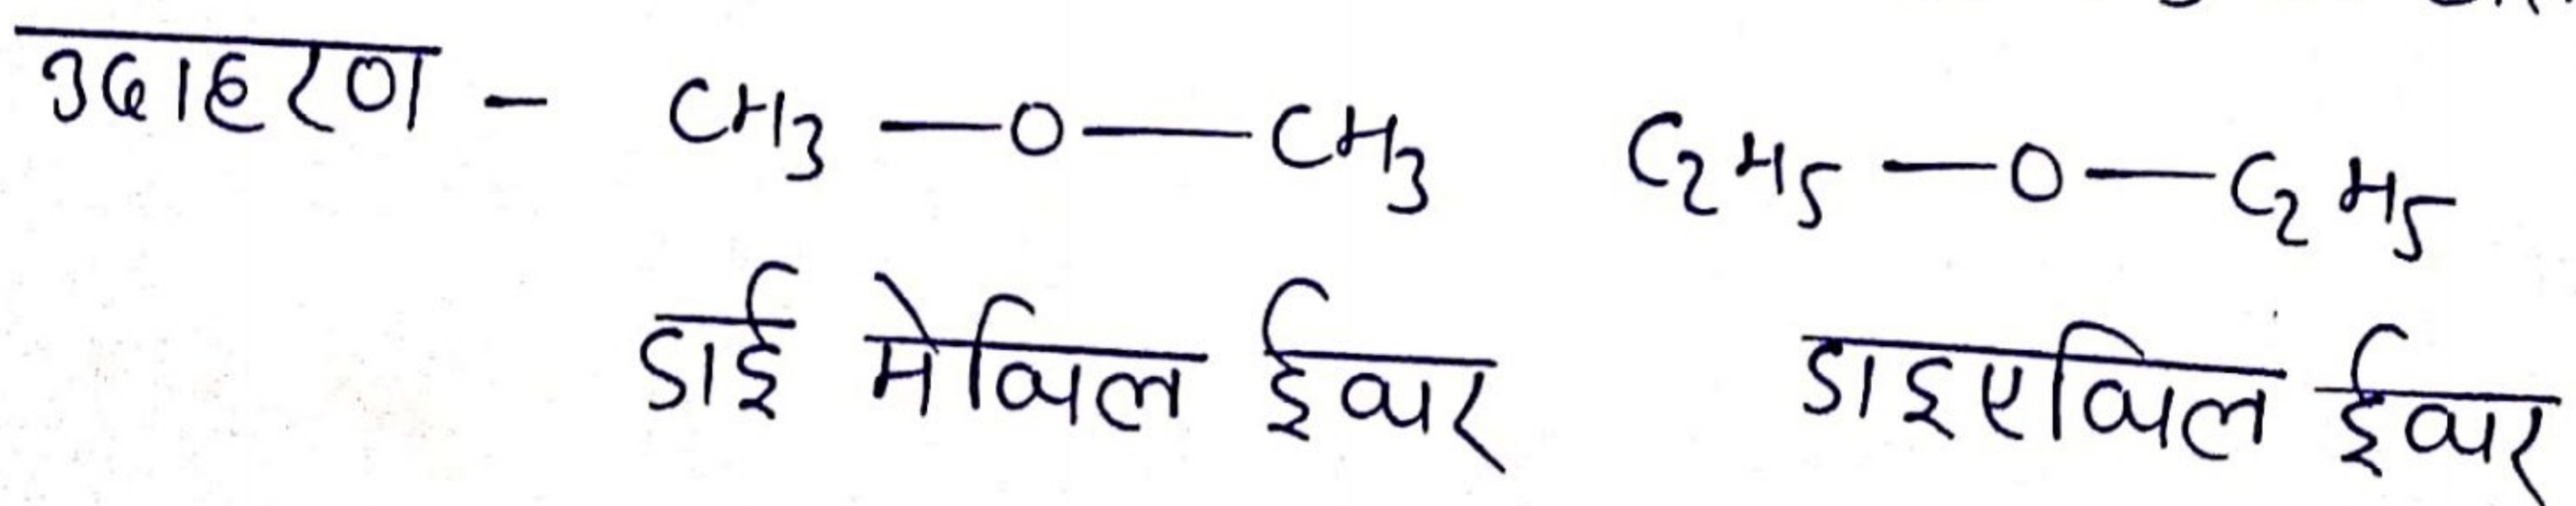 उदाहरण - CH₃ —O— CH₃ C₂H₅ —O— C₂H₅
डाई मेथिल ईथर डाइएथिल ईथर